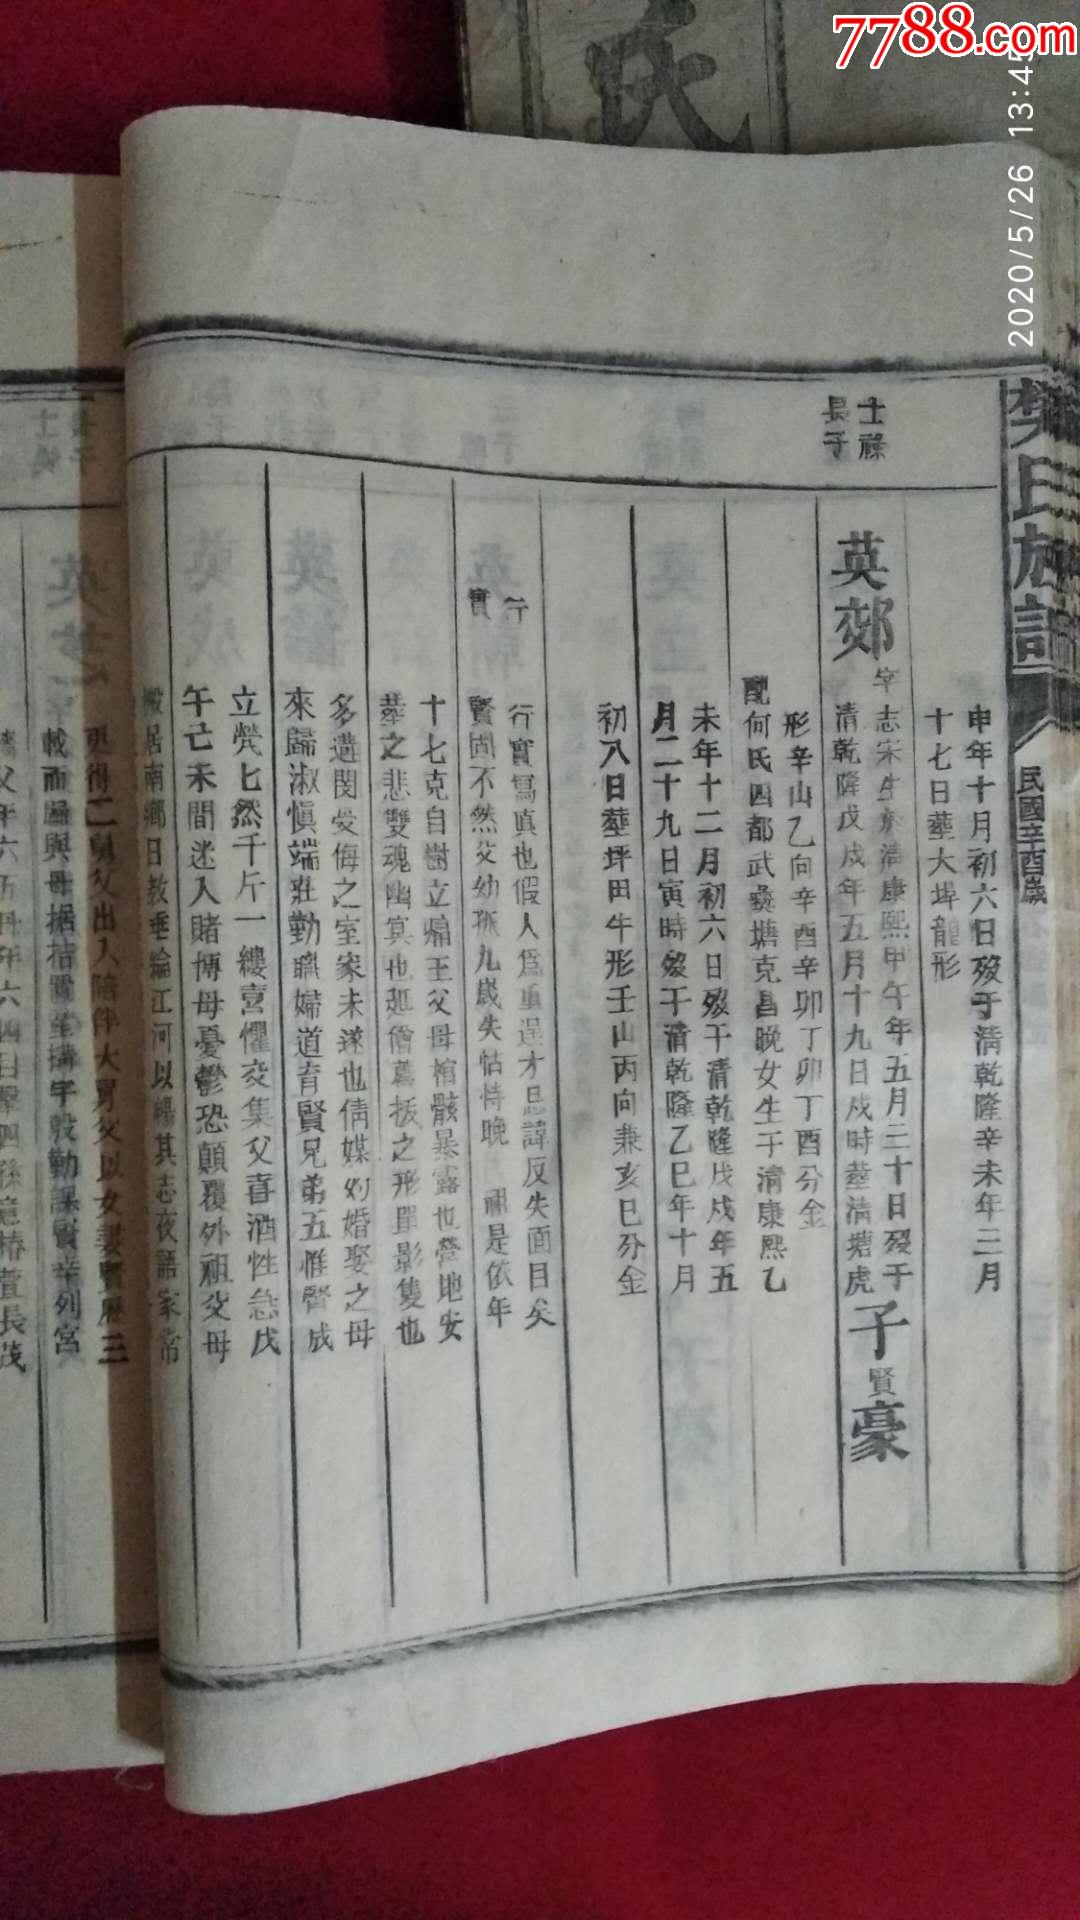 7788.com
2020/5/26 13:45
氏
樊氏族譜
民國辛酉歲
申年十月初六日歿于清乾隆辛未年三月
十七日塟大埠龍形
士祿
長子
英郊
字志宋生於清康熙甲午年五月三十日歿于
清乾隆戊戌年五月十九日戌時塟清塘虎
子賢豪
形辛山乙向辛酉辛卯丁卯丁酉分金
配何氏四都武彝塘克昌晚女生于清康熙乙
未年十二月初六日歿于清乾隆戊戌年五
月二十九日寅時歿于清乾隆乙巳年十月
初八日塟坪田牛形壬山丙向兼亥巳分金
行實
行實寫真也假人爲重逞才忌諱反失面目矣
賢固不然父幼孤九歲失怙恃晚 祖是依年
十七克自樹立痛王父母棺骸暴露也營地安
塟之悲雙魂幽冥也延僧薦拔之形單影隻也
多遭閔受侮之室家未遂也倩媒妁婚娶之母
來歸淑慎端莊勤職婦道育賢兄弟五惟賢成
立煢匕然千斤一縷喜懼交集父喜酒性急戊
午己未間迷入賭博母憂鬱恐顛覆外祖父母
居南鄉日教垂綸江河以暢其志夜語家常
更得二舅父出入陪伴大舅父以女妻賢歷三
載而